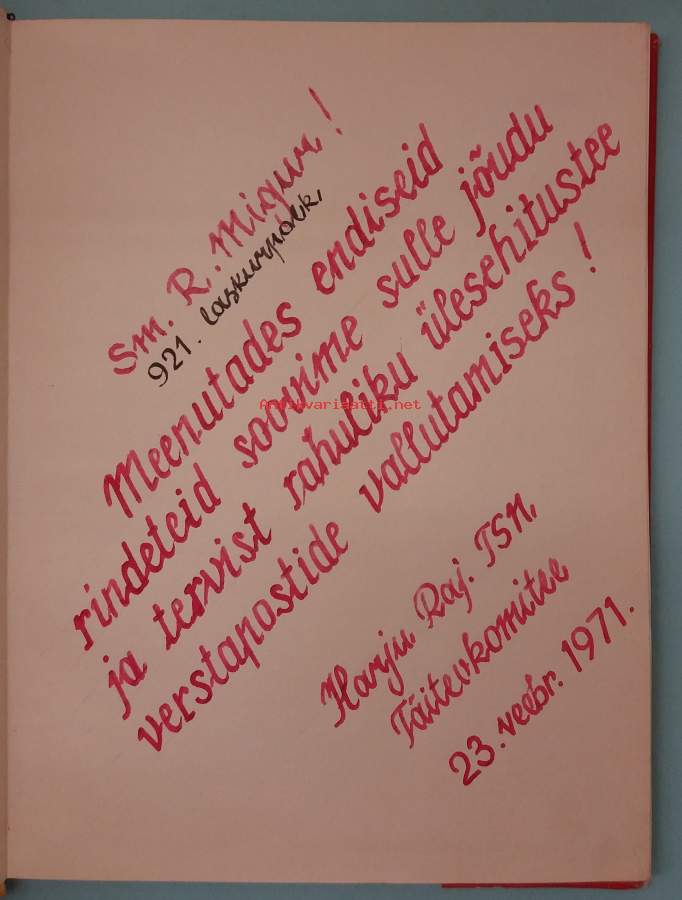 Sm. R. Migur!
921. laskurpolk.
Meenutades endiseid
rindeteid soovime sulle jõudu
ja tervist rahuliku ülesehitustee
verstapostide vallutamiseks!
Harju Raj. TSN.
Täitevkomitee
23. veebr. 1971.
Antikvariaatti.net